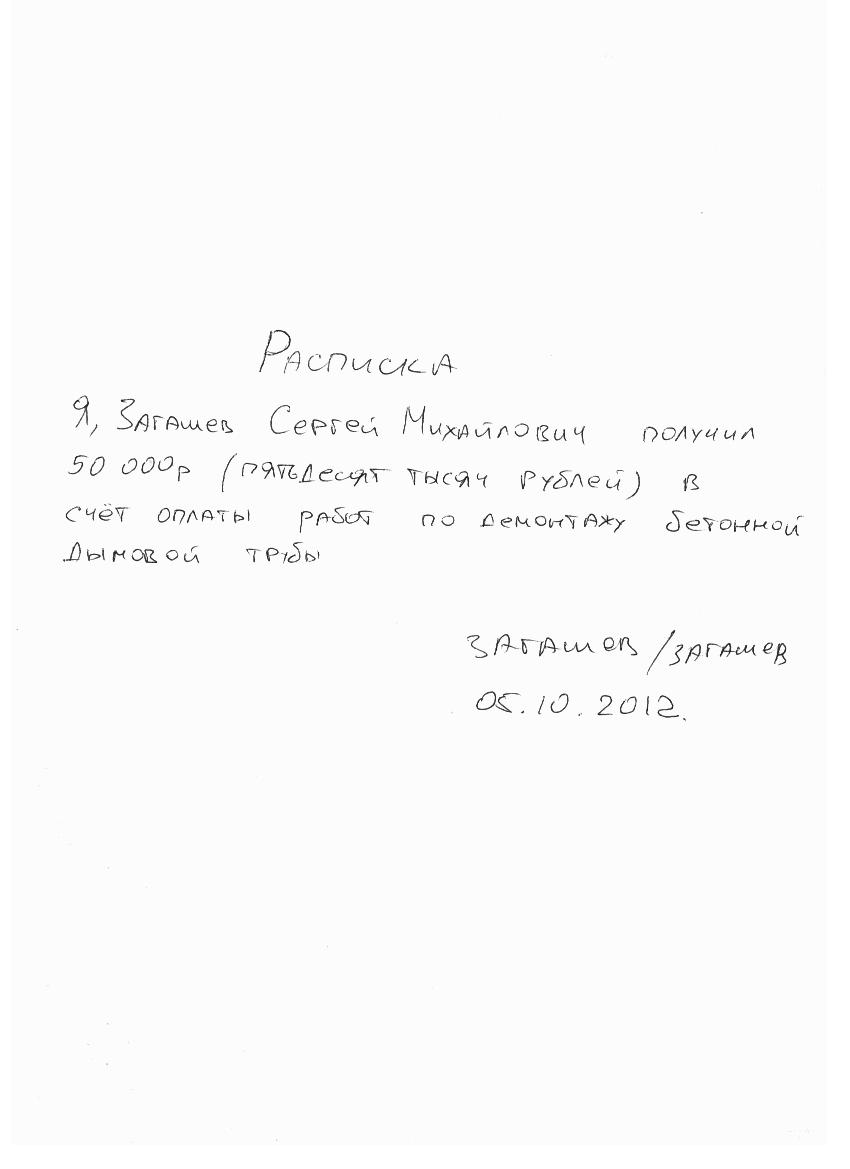 Расписка
Я, Загашев Сергей Михайлович получил
50 000р (пятьдесят тысяч рублей) в
счёт оплаты работ по демонтажу бетонной
дымовой трубы
Загашев /Загашев
05.10.2012.